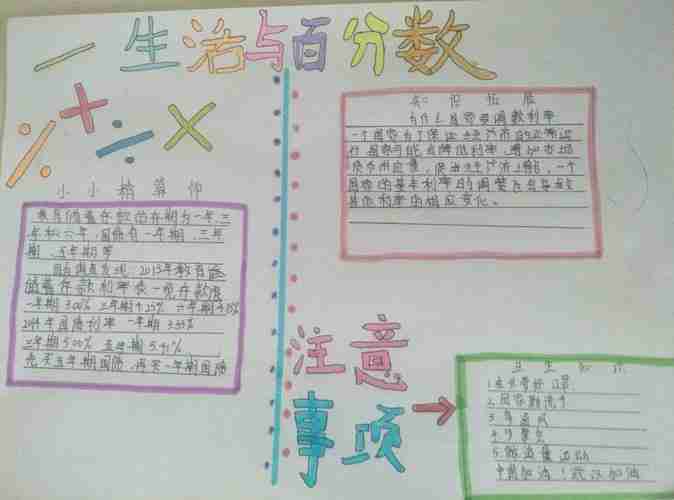 生活与百分数
% + ÷ ×
小小精算师
教育储蓄存款的存期为一年、三
年和六年，国债有一年期、三年
期、五年期等
2013年教育
储蓄存款利率
一年期3.00% 三年期4.25% 六年期4.75%
2014年国债利率 一年期
三年期5.00% 五年期5.41%
先买五年期国债，再买一年期国债
知识拓展
为什么国家要调整利率
一个国家为了保证经济市的正常运
行 国家可能会降低利率，增加市场
货币供应量，促进经济增长，一个
国家的基本利率的调整
其他利率的相应变化。
注意
事项
卫生知识
1.
2.回家勤洗手
3.多通风
4.少聚会
5.做适量运动
中国加油！武汉加油